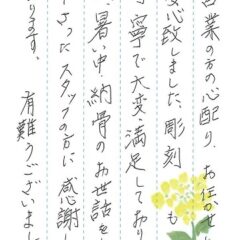 営業の方の心配り、お任せ
安心致しました。彫刻も
丁寧で大変満足しており
暑い中、納骨のお世話を
さったスタッフの方に感謝し
ります。
有難うございまし